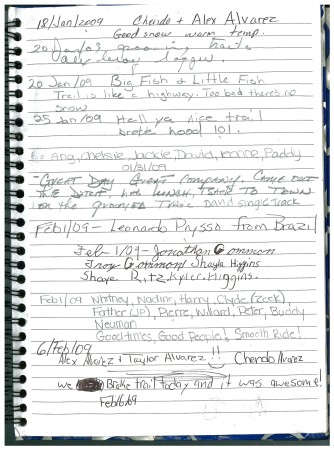 18/Jan/2009 Chendo + Alex Alvarez
Good snow warm temp.
20 Jan/09 grooming trails
20 Jan/09 Big Fish + Little Fish
Trail is like a highway. Too bad there's no
snow
25 Jan/09 Hell ya nice trail
broke hood 101.
Ang, Chelsie, Jackie, David, Paddy
01/31/09
Great Day Great Company. Came out
the had lunch, back to town
on the groomed Twice David single track
Feb 1/09 - Leonardo from Brazil
Feb 1/09 - Jonathan Common
Troy Common Shayla Higgins
Shaye Ritz. Kyler. Higgins.
Feb 1/09 Whitney, Nadine, Harry, Clyde (Zeek),
Father (JP), Pierre, Willard, Peter, Buddy
Neuman
Good times, Good People! Smooth Ride!
6/Feb/09
Alex Alvarez + Taylor Alvarez!! Chendo Alvarez
we Broke trail today and it was awesome!
Feb/6/09